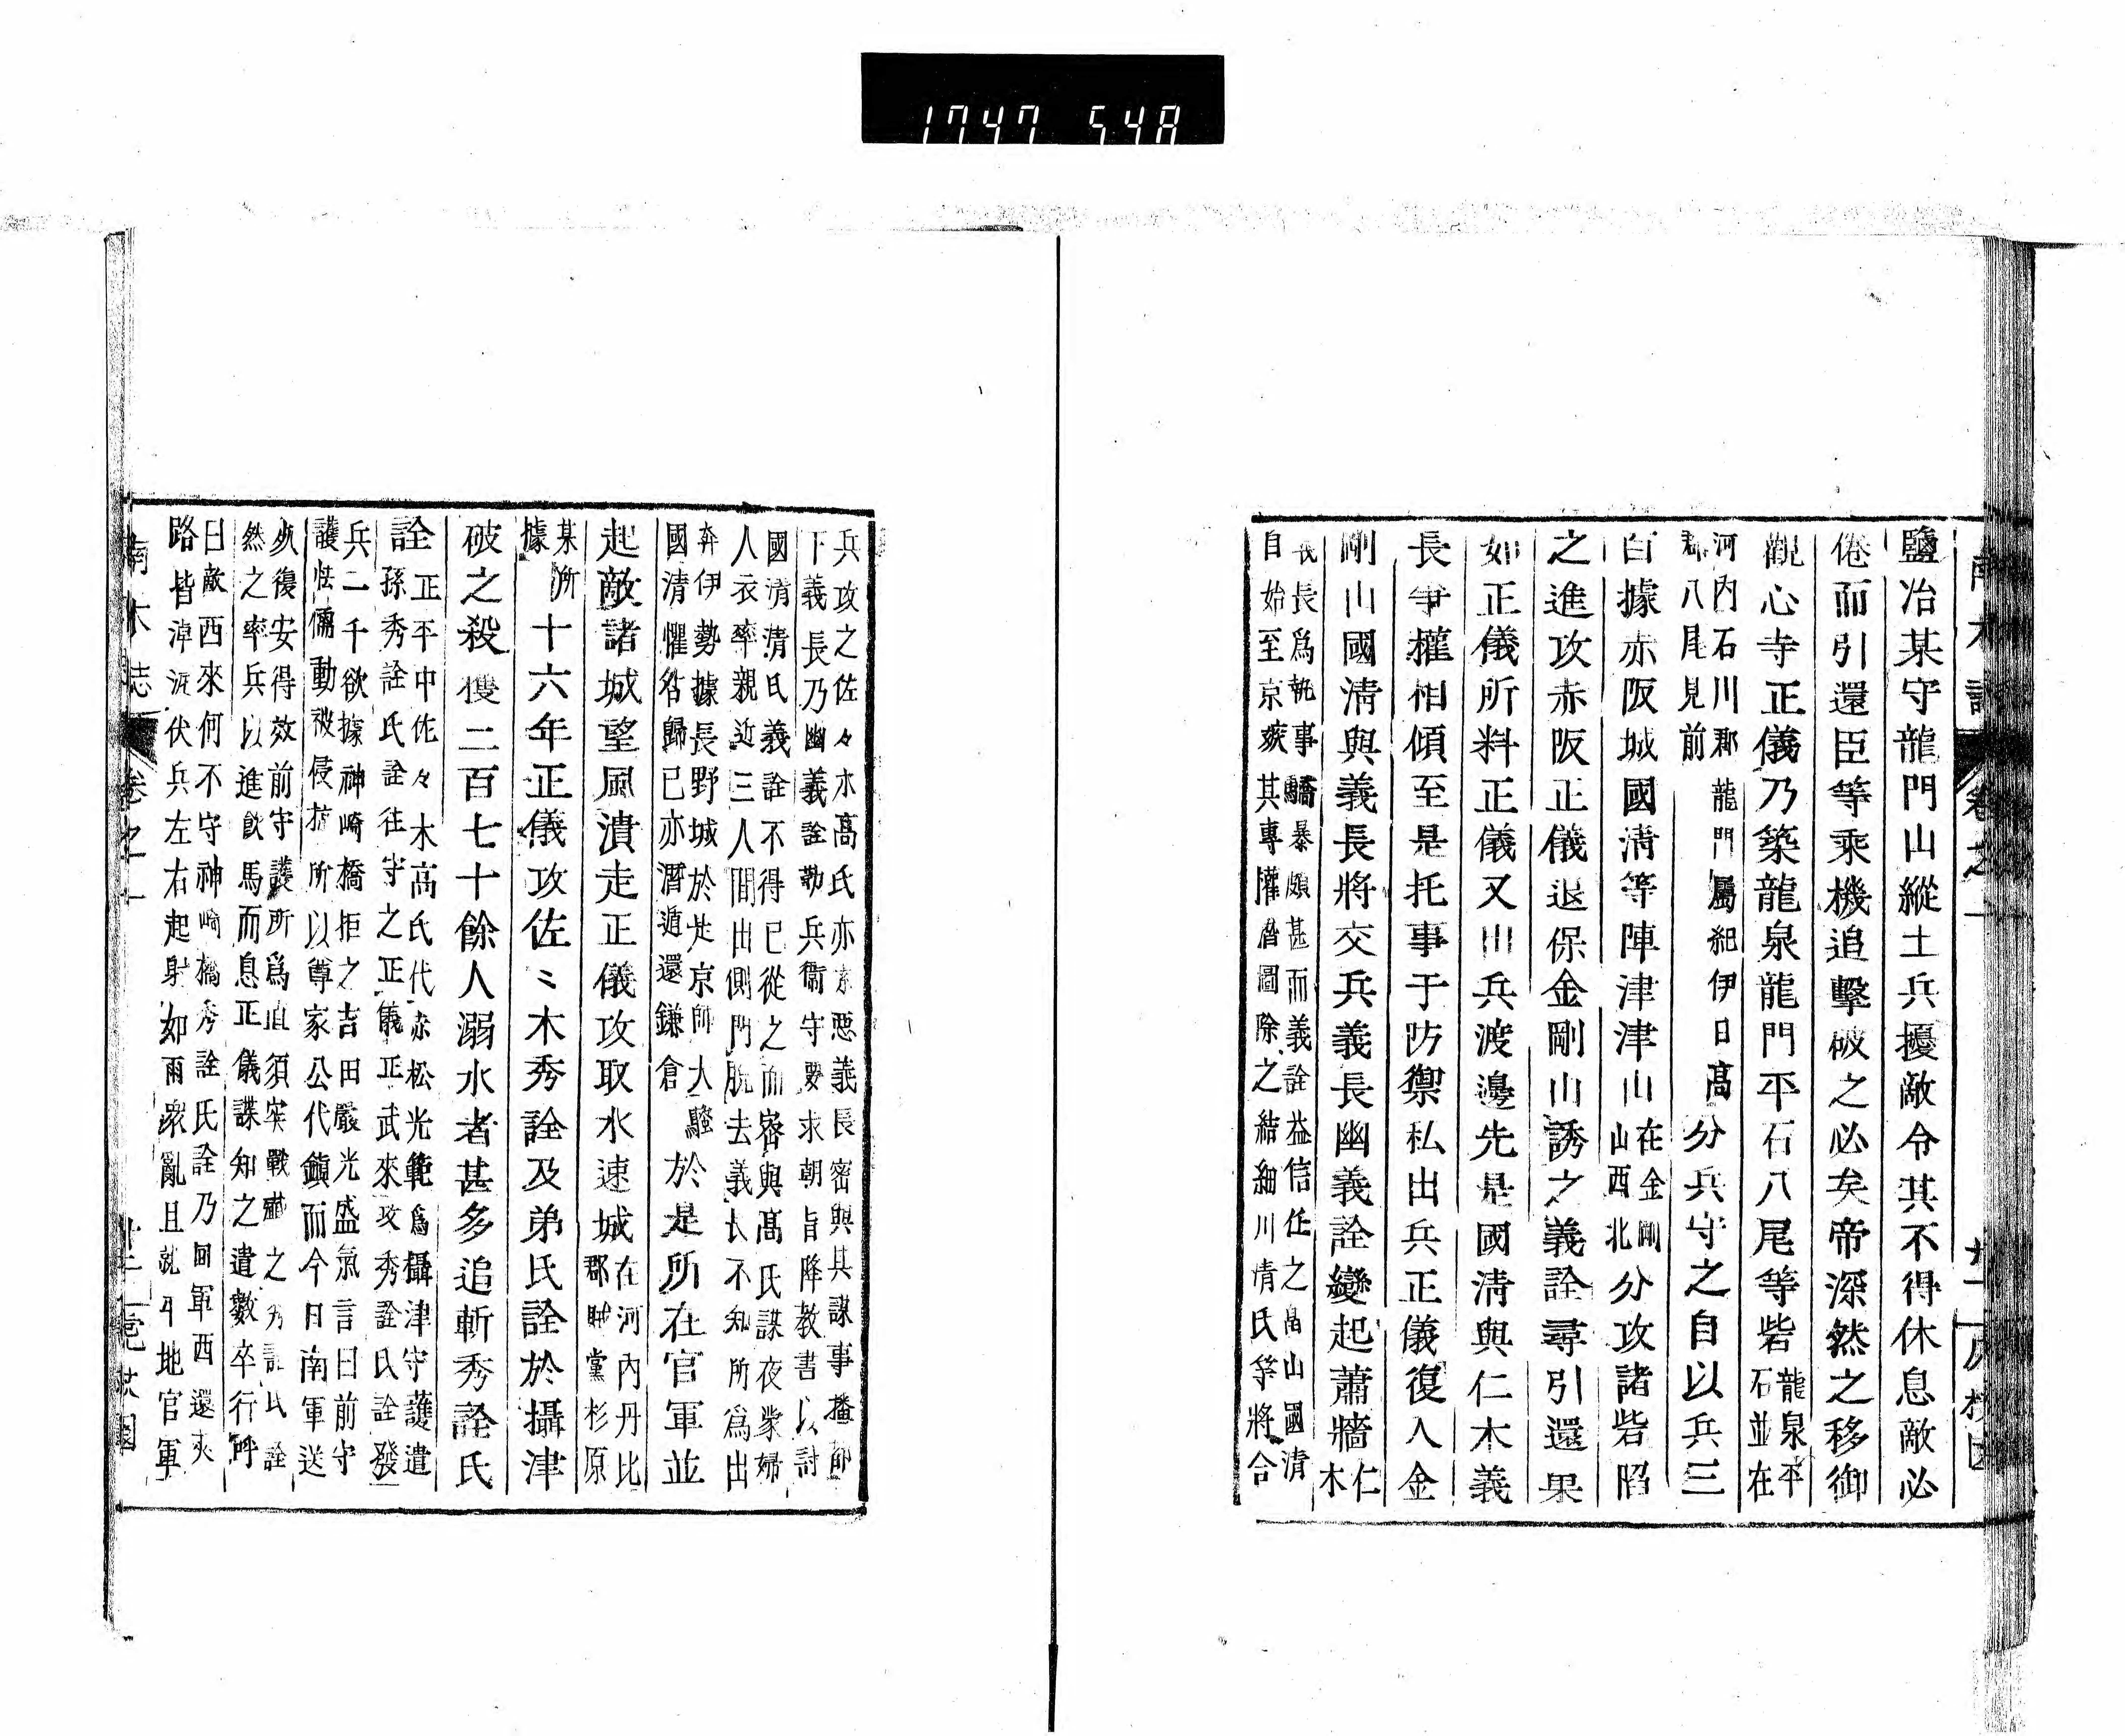 1747 548
鹽冶某守龍門山縱土兵擾敵令其不得休息敵必
倦而引還臣等乘機追擊破之必矣帝深然之移御
觀心寺正儀乃築龍泉龍門平石八尾等砦龍泉平石並在
河内石川郡龍門屬紀伊日高郡八尾見前分兵守之自以兵三
百據赤阪城國清等陣津津山在金剛山西北分攻諸砦陷
之進攻赤阪正儀退保金剛山誘之義詮尋引還果
如正儀所料正儀又出兵渡邊先是國清與仁木義
長爭權相傾至是托事于防禦私出兵正儀復入金
剛山國清與義長將交兵義長幽義詮變起蕭牆仁木
義長爲執事驕暴頗甚而義詮益信任之畠山國清
自始至京嫉其專權潛圖除之結細川清氏等將合
兵攻之佐々木高氏亦素惡義長密與其謀事播都
下義長乃幽義詮勒兵衞守要求朝旨降教書以討
國清清氏義詮不得已從之而密與高氏謀夜蒙婦
人衣率親近三人間出側門脫去義長不知所爲出
奔伊勢據長野城於是京師大騷於是所在官軍並
國清懼咎歸己亦潛遁還鎌倉
起敵諸城望風潰走正儀攻取水速城在河内丹比郡賊黨杉原
某所據十六年正儀攻佐〻木秀詮及弟氏詮於攝津
破之殺獲二百七十餘人溺水者甚多追斬秀詮氏
詮正平中佐々木高氏代赤松光範爲攝津守護遣
孫秀詮氏詮往守之正儀正武來攻秀詮氏詮發
兵二千欲據神崎橋拒之吉田嚴光盛氣言曰前守
護怯懦動被侵掠所以尊家公代鎭而今日南軍送
死復安得效前守護所爲直須突戰蹴之秀詮氏詮
然之率兵以進飮馬而息正儀諜知之遣數卒行呼
曰敵西來何不守神崎橋秀詮氏詮乃回軍西還夾
路皆淖泥伏兵左右起射如雨衆亂且就平地官軍
南木誌 卷之一